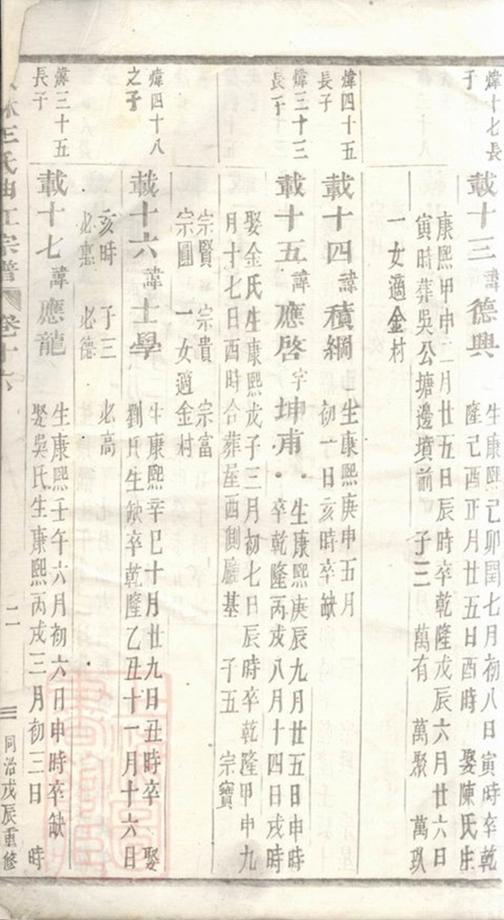 煒十七長
子
載十三諱德興
生康熙己卯閏七月初八日寅時卒乾
隆己酉正月廿五日酉時 娶陳氏生
康熙甲申二月廿五日辰時卒乾隆戊辰六月廿六日
寅時葬吳公塘邊墳前 子三 萬有 萬聚 萬玖
一女適金村
煒四十五
長子
載十四諱積綱
生康熙庚申五月
初一日亥時卒缺
煒三十三
長子
載十五諱應啓字坤甫
生康熙庚辰九月廿五日申時
卒乾隆丙戌八月十四日戌時
娶金氏生康熙戊子三月初七日辰時卒乾隆甲申九
月十七日酉時合葬屋西側廳基 子五 宗寶
宗賢 宗貴 宗富
宗圓 一女適金村
煒四十八
之子
載十六諱士學
生康熙辛巳十月廿九日丑時卒 娶
劉氏生缺卒乾隆乙丑十一月十六日
亥時 子三 必高
必惠 必德
煒三十五
長子
載十七諱應龍
生康熙壬午六月初六日申時卒缺
娶吳氏生康熙丙戌三月初三日 時
王氏 宗譜 卷十六 二一 同治戊辰重修